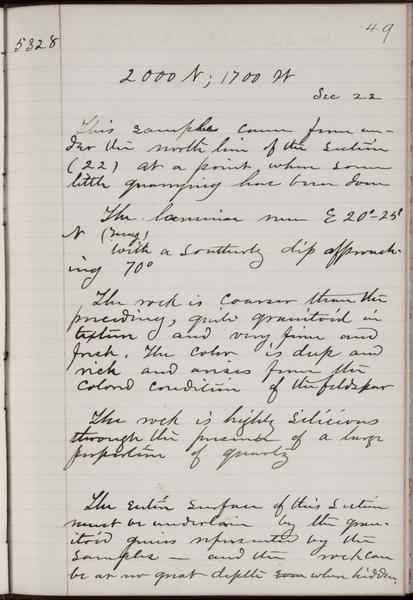 49
5328
2000 N; 1700 W
Sec 22
This sample came from un-
der the north line of the Section
(22) at a point where some
little quarrying has been done
The laminae run E 20°-25°
N (mag)
with a Southerly dip approach-
ing 70°
The rock is coarser than the
preceding, quite granitoid in
texture and very firm and
fresh. The color is deep and
rich and arises from the
colored condition of the feldspar
The rock is highly Silicious
through the presence of a large
proportion of quartz
The entire surface of this Section
must be underlain by the gran-
itoid gneiss represented by the
samples — and the rock can
be at no great depth when hidden.